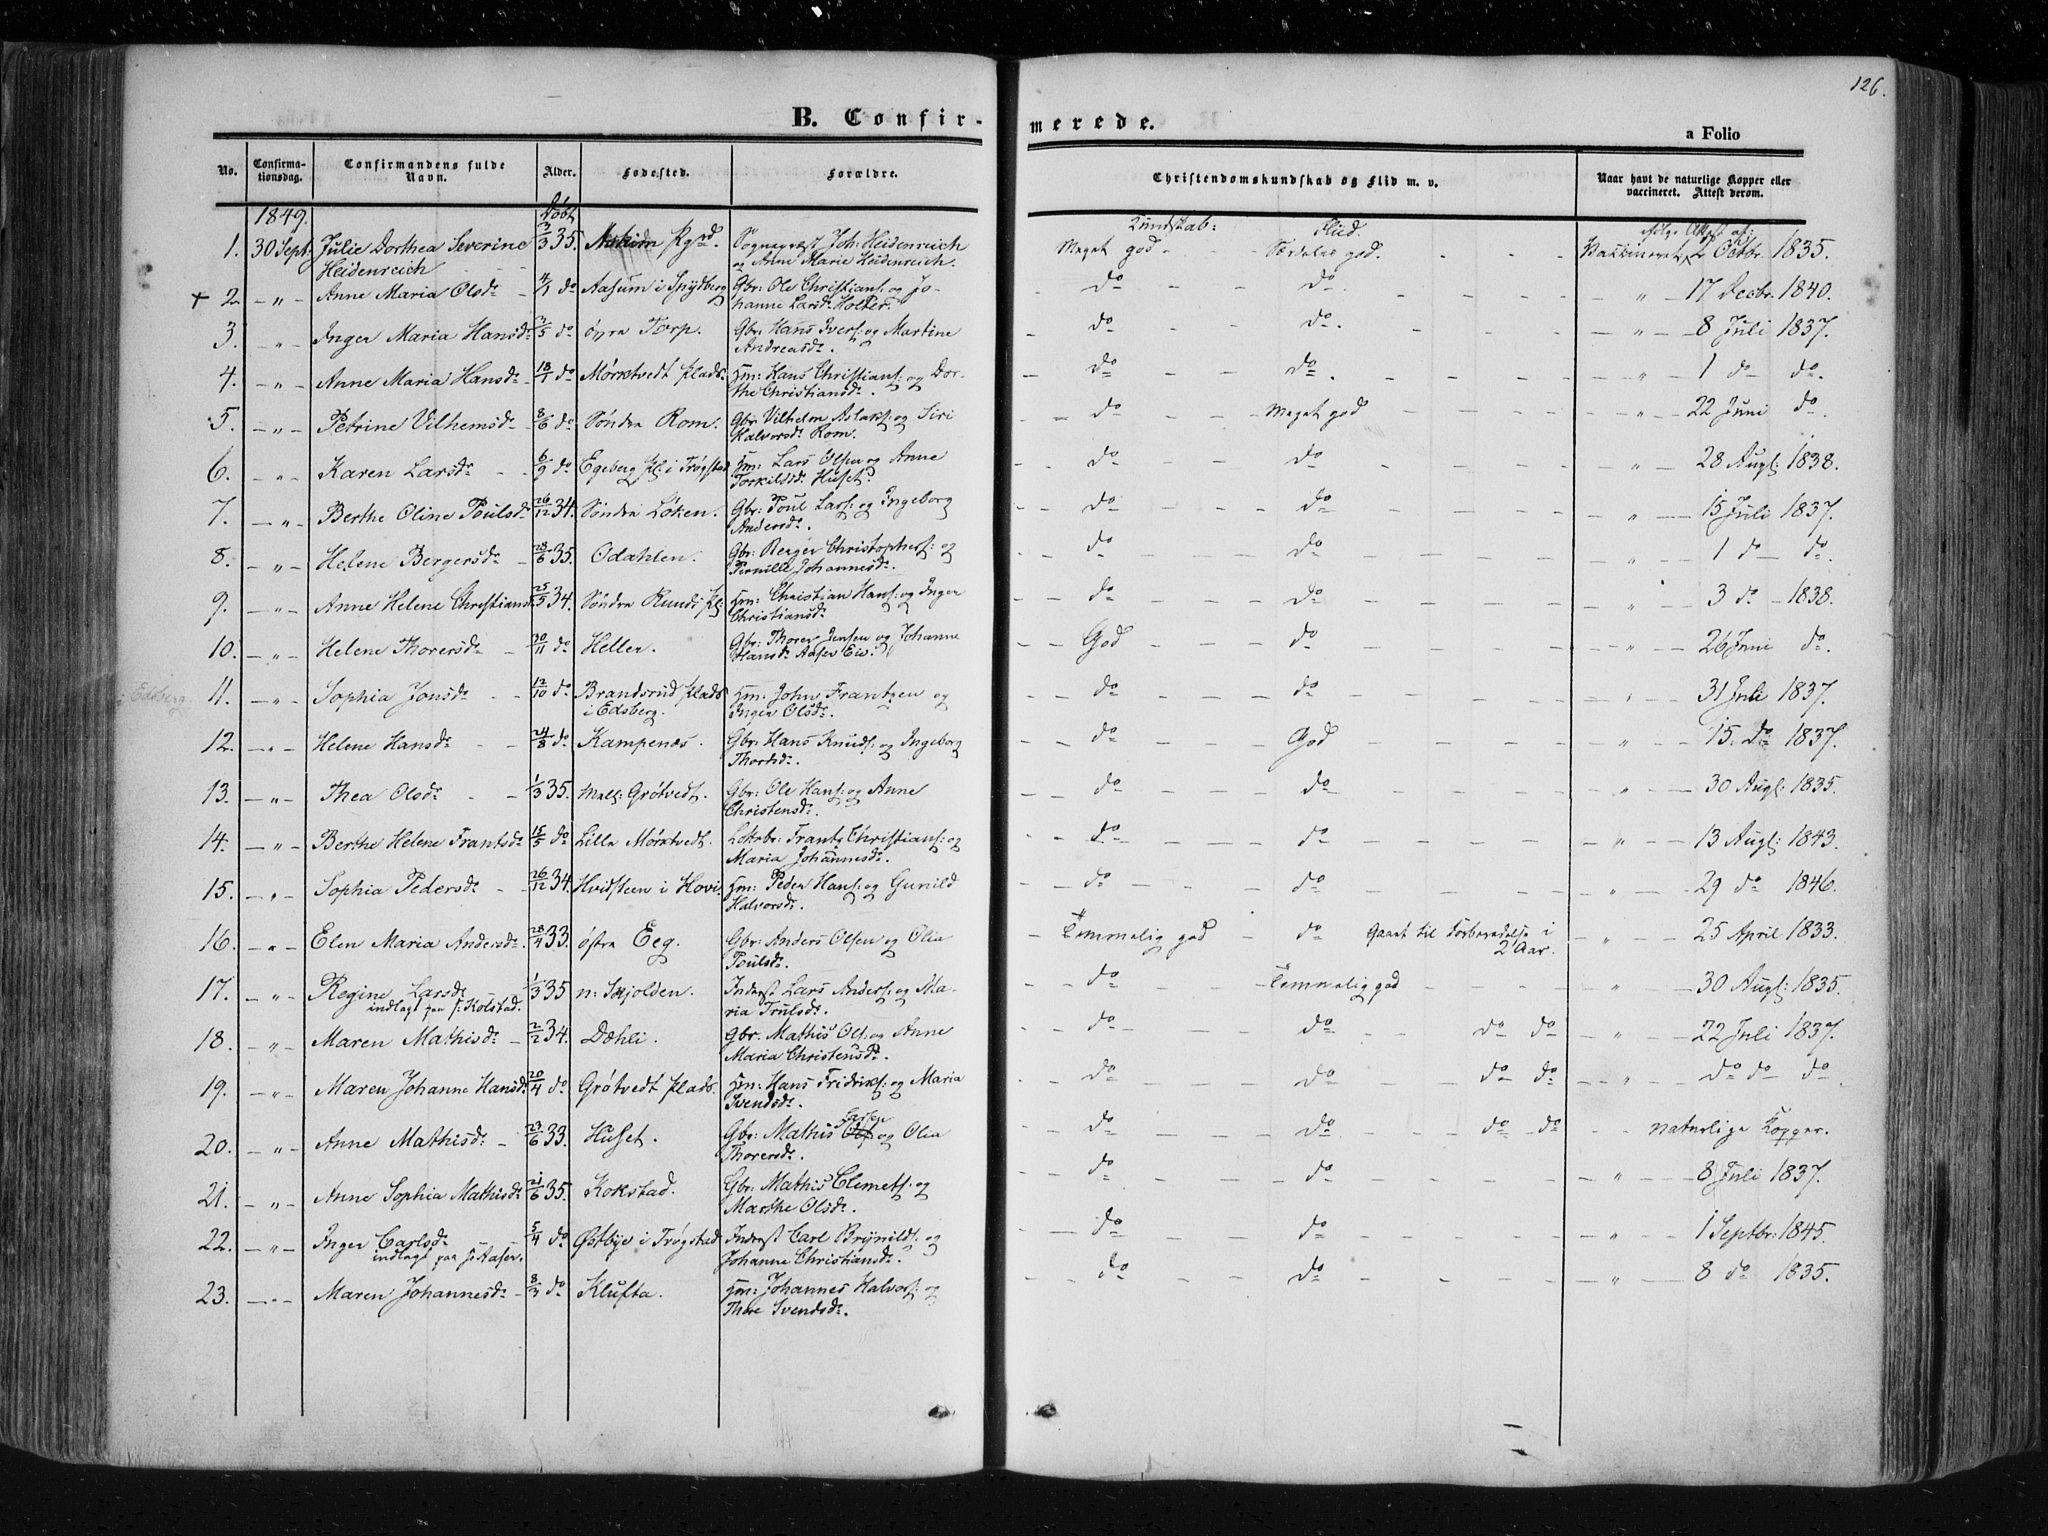 126.
B. Confir-
merede.
a Folio
No.
Confirma-
tionsdag.
Confirmandens fulde
Navn.
Alder.
Fødested.
Forældre.
Christendomskundskab og Flid m. v.
Naar havt de naturlige Kopper eller
vaccineret. Attest derom.
1849.
Døbt
Kundskab:
Flid.
ifølge Attest af:
1. 30 Sept: Julie Dorthea Severine 3/3 35. Askim Prgrd Sognepræst Joh: Heidenreich Meget god - - Særdeles god. - - - Vaccineret 2 Octbr. 1835.
Heidenreich og Anne Marie Heidenreich.
+ 2. - " - Anne Maria Olsdr 4/1 do Aasum i Spydberg Gbr: Ole Christians: og Jo- do do " 17 Decbr. 1840.
hanne Larsdr Holter.
3. - " - Inger Maria Hansdr 3/5 do øvre Torp. Gbr: Hans Ivers: og Martine do do. " 8 Juli 1837.
Andreasdr.
4. - " - Anne Maria Hansdr 18/1 do Mørktvedt plads: Hm: Hans Christians: og Dor- do do " 1 do do.
the Christiansdr.
5. - " - Petrine Vilhemsdr 8/6 do Søndre Rom. Gbr: Vilhelm Aslaks: og Siri do Meget god " 22 Juni do.
Halvorsdr Rom.
6. - " - Karen Larsdr 6/9 do Egeberg pl: i Trøgstad Hm: Lars Olsen og Anne do do " 28 Augs: 1838.
Torkildsdr Huset.
7. - " - Berthe Oline Poulsdr 26/12 34. Søndre Løken. Gbr: Poul Lars: og Ingeborg do do " 15 Juli 1837.
Andersdr.
8. - " - Helene Bergersdr 28/6 35. Odahlen. Gbr: Berger Christophers: og do do " 1 do do.
Pernille Johannesdr.
9. - " - Anne Helene Christiansdr 25/5 34. Søndre Rund: pl: Hm: Christian Hans: og Inger do do " 3 do 1838.
Christiansdr.
10. - " - Helene Thorersdr 30/11 do Heller. Gbr: Thorer Jensen og Johanne God do " 26 Juni do.
Hansdr Aaser Eie.
i Edsberg. 11. - " - Sophia Jonsdr 12/10 do Brandsrud plads Hm: John Frantzen og do do " 31 Juli 1837.
i Edsberg. Inger Olsdr.
12. - " - Helene Hansdr 24/8 do Kampenæs. Gbr: Hans Knuds: og Ingeborg do God " 15. do 1837.
Thordsdr.
13. - " - Thea Olsdr 1/3 35. Mell: Grøtvedt. Gbr: Ole Hans: og Anne do do " 30 Augs: 1835.
Christensdr.
14. - " - Berthe Helene Frantsdr 15/5 do Lille Mørktvedt. Lekrbr: Frantz Christians: og do do " 13 Augs: 1843.
Maria Johannesdr.
15. - " - Sophia Pedersdr 26/12 34. Hvidsteen i Hovi. Hm: Peder Hans: og Gunild do do " 29 do 1846.
Halvorsdr.
16. - " - Elen Maria Andersdr. 28/4 33. østre Eeg. Gbr: Anders Olsen og Olia Temmelig god do Gaaet til Forberedelse i " 25 April 1833.
Poulsdr. 2 Aar.
17. - " - Regine Larsdr 1/3 35 n: Skjolden. Inderst Lars Anders: og Ma- do Temmelig god " 30 Augs: 1835.
indlagt paa s: Kolstad. ria Trulsdr.
18. - " - Maren Mathisdr 2/2 34. Dæhli. Gbr: Mathis Ols: og Anne do do do do " 22 Juli 1837.
Maria Christensdr.
19. - " - Maren Johanne Hansdr 20/4 do Grøtvedt plads. Hm: Hans Fridriks: og Maria do do do do " do do do
Svendsdr.
20. - " - Anne Mathisdr 23/6 33. Huset. Gbr: Mathis Larsen og Olia do do do do naturlige Kopper.
Thorersdr.
21. - " - Anne Sophia Mathisdr 21/6 35. Kokstad. Gbr: Mathis Clemets: og do do " 8 Juli 1837.
Marthe Olsdr.
22. - " - Inger Carlsdr 5/4 do Østbye i Trøgstad Inderst Carl Brynilds: og do do " 1 Septbr: 1845.
indlagt paa s: Aaser. Johanne Christiansdr.
23. - " - Maren Johannesdr 8/3 do Klufta. Hm: Johannes Halvors: og do do " 8 do 1835.
Thore Svendsdr.